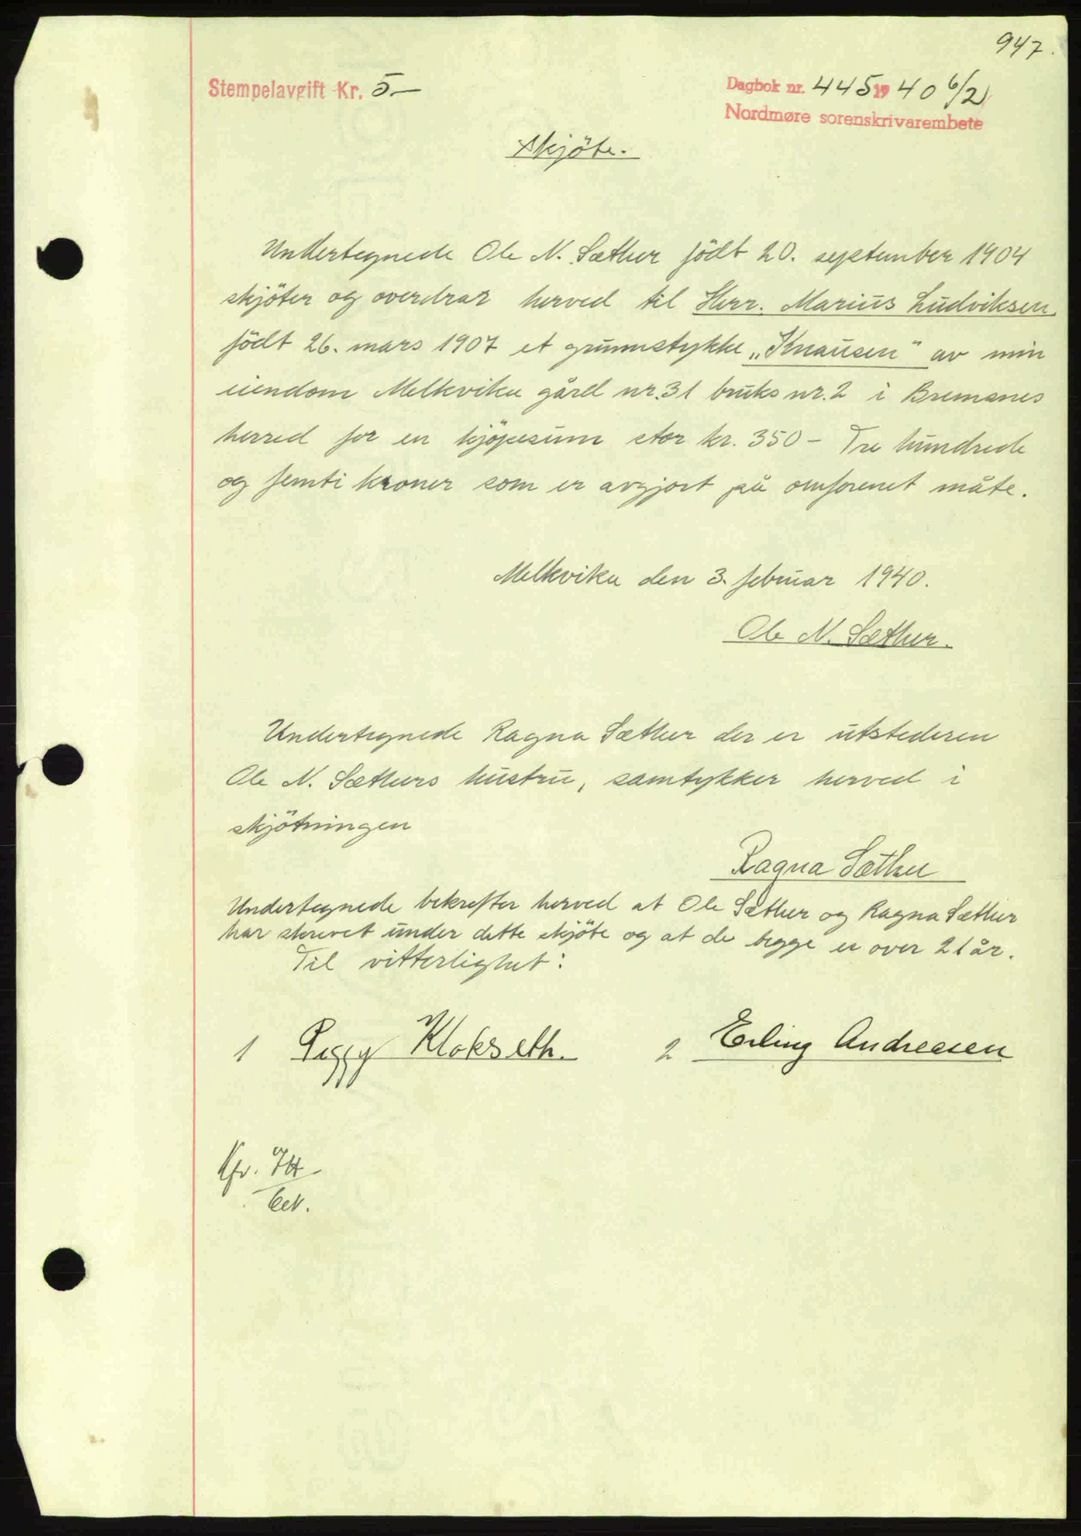 947.
Stempelavgift Kr. 5.—
Dagbok nr. 445 1940 6/2
Nordmøre sorenskrivarembete
Skjöte.
Undertegnede Ole N. Sæther födt 20. september 1904
skjöter og overdrar herved til Herr. Marius Ludviksen
födt 26. mars 1907 et grunnstykke „Knausen" av min
eiendom Melkvika gård nr. 31 bruks nr. 2 i Bremsnes
herred for en kjöpesum stor kr. 350 - Tre hundrede
og femti kroner som er avgjort på omforenet måte.
Melkvika den 3. februar 1940.
Ole N. Sæther.
Undertegnede Ragna Sæther der er utstederen
Ole N. Sæthers hustru, samtykker herved i
skjötningen
Ragna Sæther
Undertegnede bekrefter herved at Ole Sæther og Ragna Sæther
har skrevet under dette skjöte og at de begge er over 21 år.
Til vitterlighet:
1 Peggy Klokseth. 2 Erling Andreesen
Kfr.